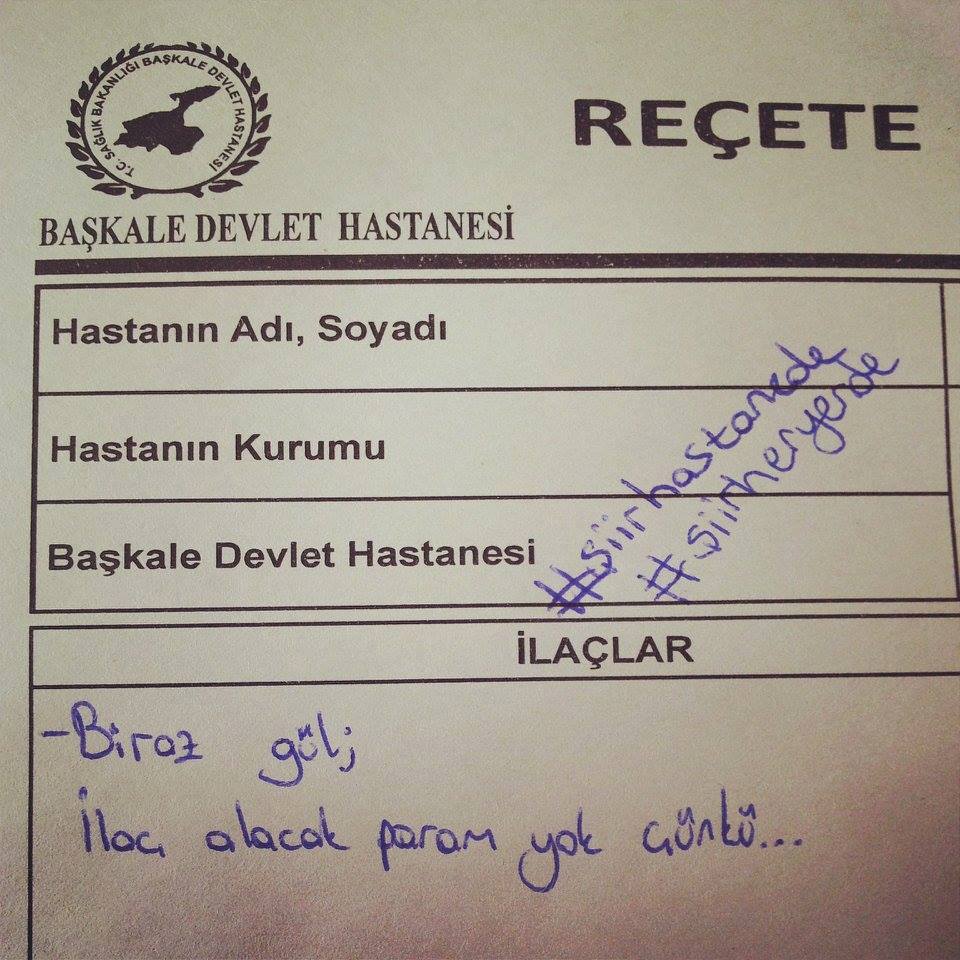 T.C. SAĞLIK BAKANLIĞI BAŞKALE DEVLET HASTANESİ
REÇETE
BAŞKALE DEVLET HASTANESİ
Hastanın Adı, Soyadı
Hastanın Kurumu
Başkale Devlet Hastanesi
#şiirhastanede
#şiirheryerde
İLAÇLAR
-Biraz gül;
İlaç alacak param yok çünkü...